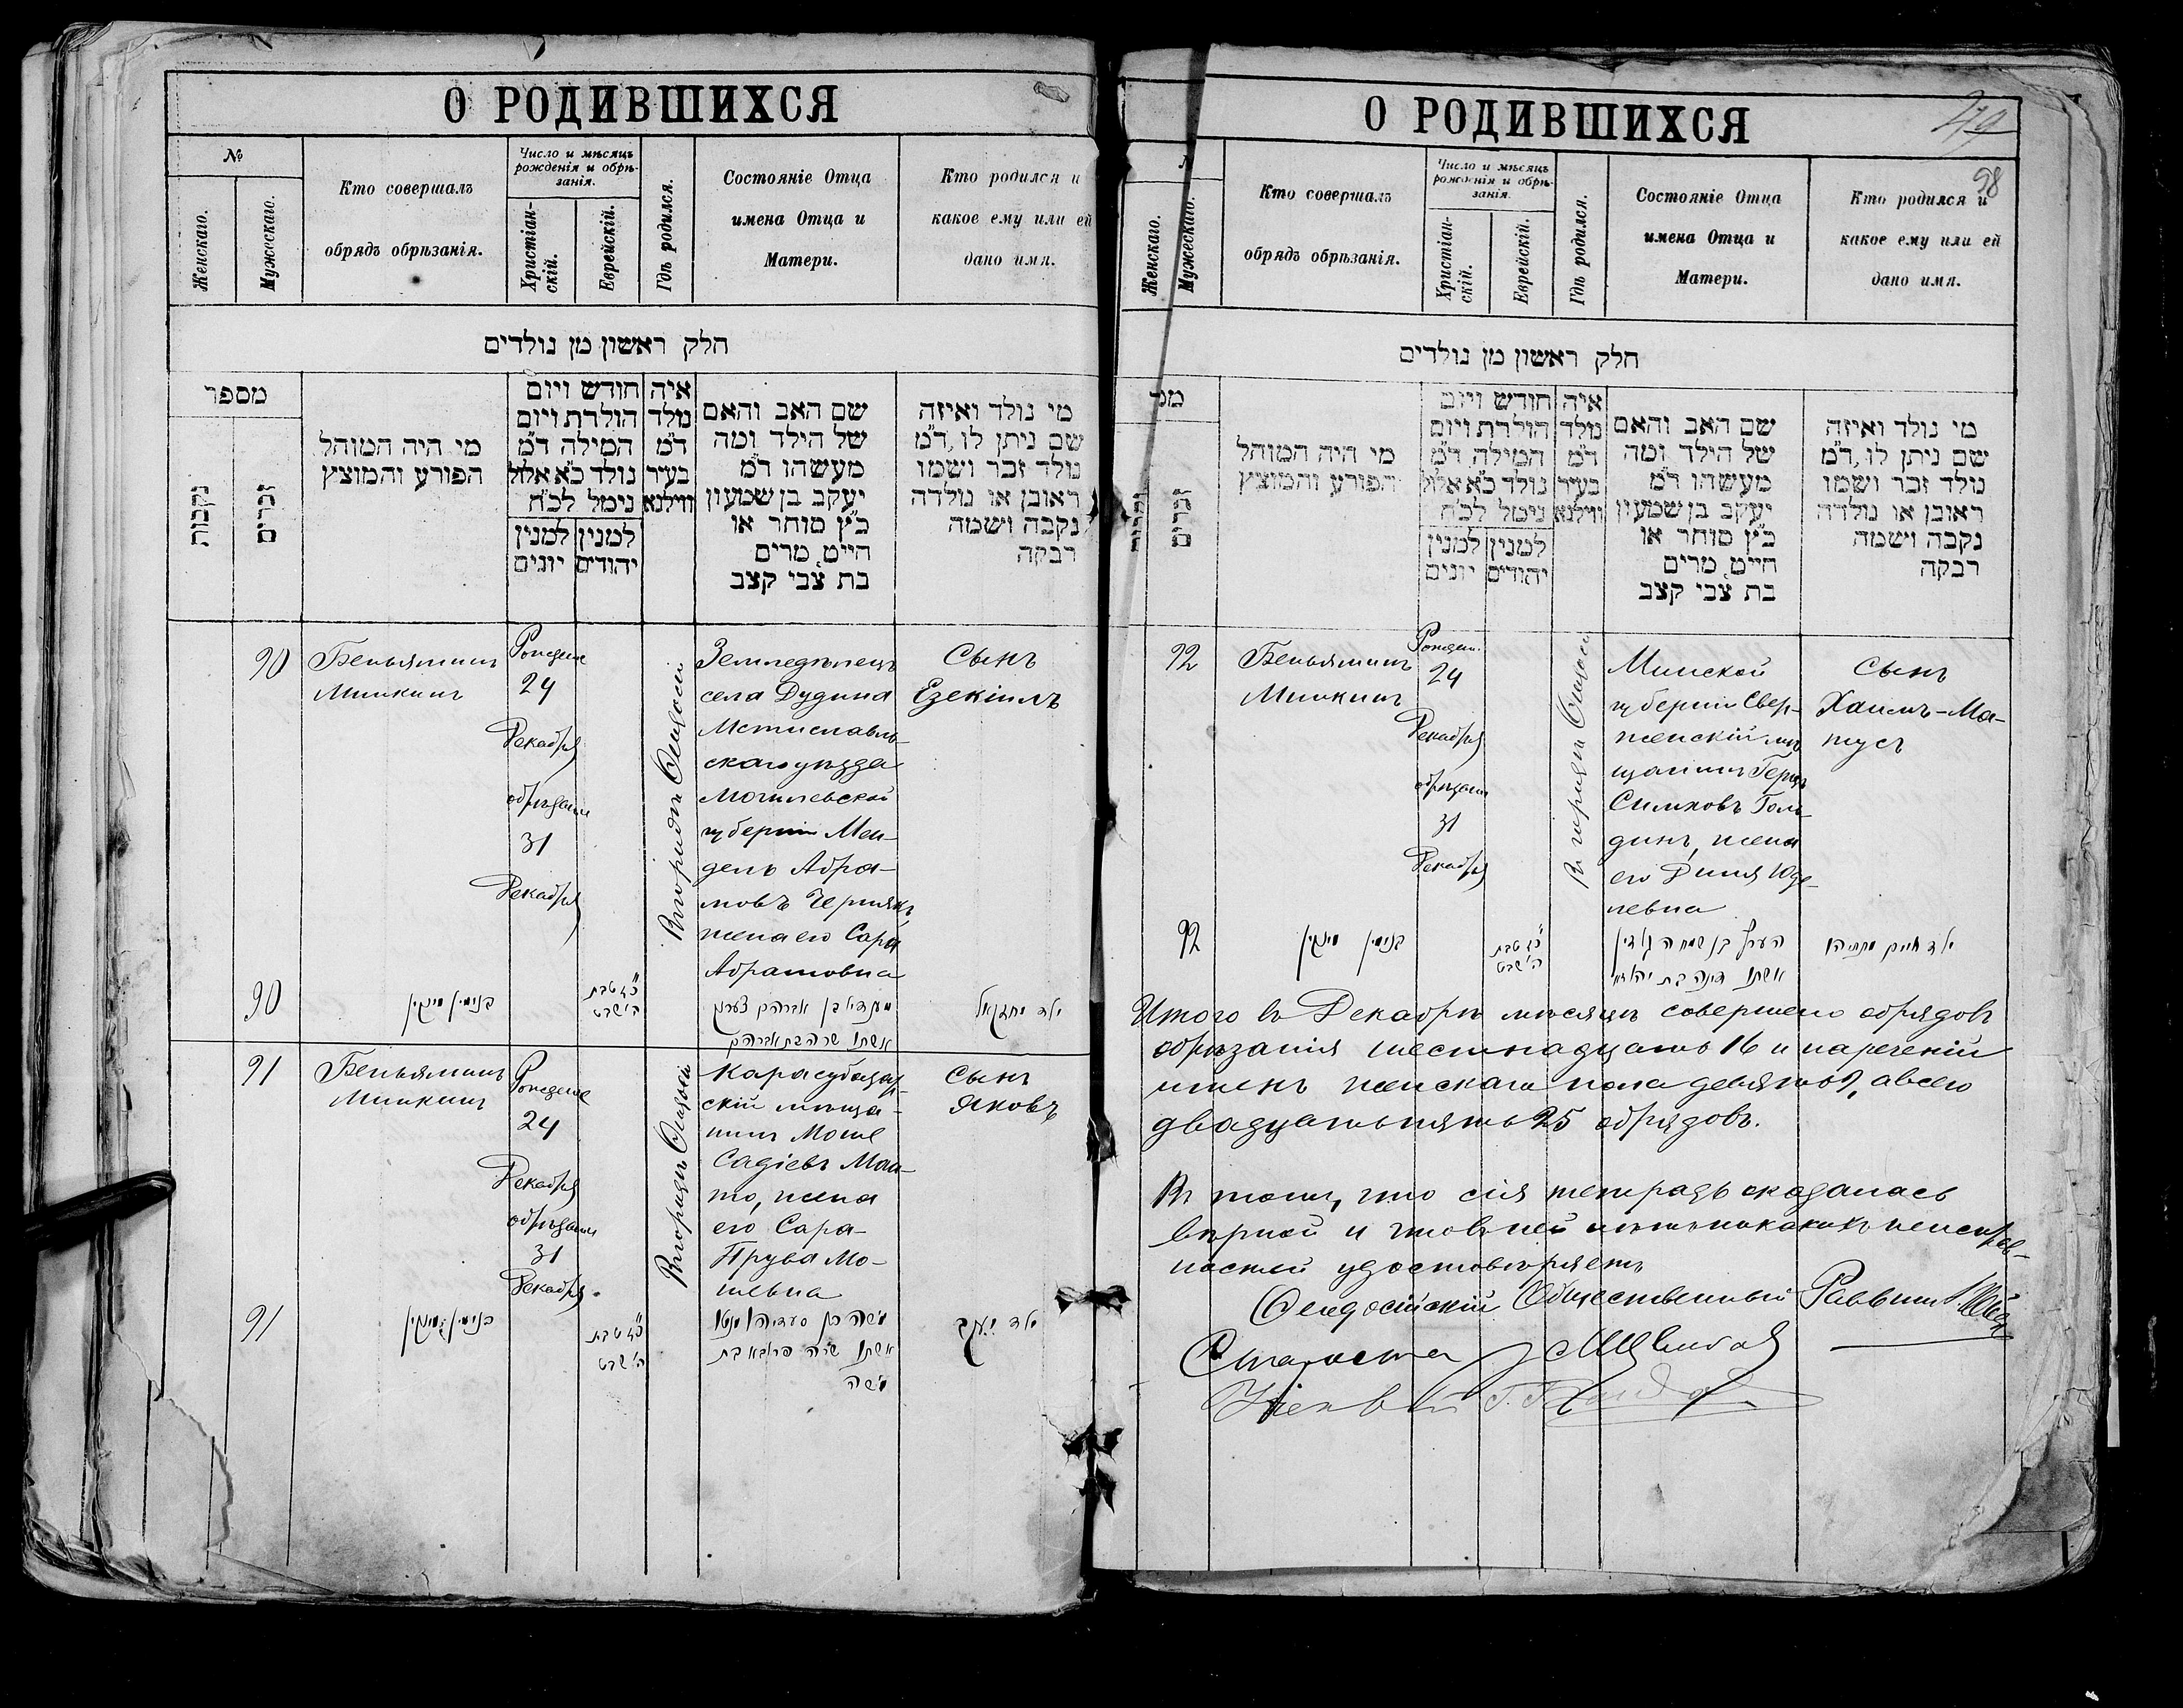 О РОДИВШИХСЯ
№
Женскаго.
Мужескаго.
Кто совершалъ
обрядъ обрѣзанія.
Число и мѣсяцъ
рожденія и обрѣ-
занія.
Христіан-
скій.
Еврейскій.
Гдѣ родился.
Состояніе Отца
имена Отца и
Матери.
Кто родился и
какое ему или ей
дано имя.
חלק ראשון מן נולדים
מספר
נקבות
זכרים
מי היה המוהל
הפורע והמוצץ
חודש ויום
הולדת ויום
המילה ד״מ
נולד כ״א אלול
נימל לכ״ח
למנין
יהודים
למנין
יונים
איה
נולד
ד״מ
בעיר
ווילנא
שם האב והאם
של הילד ומה
מעשהו ד״מ
יעקב בן שמעון
כ״ץ סוחר או
חייט, מרים
בת צבי קצב
מי נולד ואיזה
שם ניתן לו, ד״מ
נולד זכר ושמו
ראובן או נולדה
נקבה ושמה
רבקה
90
Беньяминъ
Минкинъ
Рожденіе
24
Декабря
обрѣзаніе
31
Декабря
Въ городѣ Ѳеодосіи
Земледѣлецъ
села Дудина
Мстиславль-
скаго уѣзда
Могилевской
губерніи Мен-
дель Абра-
мовъ Чернякъ
жена его Сара
Абрамовна
Сынъ
Езекіилъ
90
בנימין מינקין
כ״ג טבת
ה׳ שבט
אשתו שרה בת אברהם
ילד יחזקאל
91
Беньяминъ
Минкинъ
Рожденіе
24
Декабря
обрѣзаніе
31
Декабря.
Въ городѣ Ѳеодосіи
Карасубазар-
скій мѣща-
нинъ Моше
Садіевъ Ман-
то, жена
его Сара-
Прува Мо-
шевна
Сынъ
Яковъ
91
בנימין מינקין
כ״ג טבת
ה׳ שבט
משה בן סעדיהו מנטו
אשתו שרה פרובא בת
משה
ילד יעקב
О РОДИВШИХСЯ
49
98
Женскаго.
Мужескаго.
Кто совершалъ
обрядъ обрѣзанія.
Число и мѣсяцъ
рожденія и обрѣ-
занія.
Христіан-
скій.
Еврейскій.
Гдѣ родился.
Состояніе Отца
имена Отца и
Матери.
Кто родился и
какое ему или ей
дано имя.
חלק ראשון מן נולדים
זכרים
מי היה המוהל
הפורע והמוצץ
חודש ויום
הולדת ויום
המילה ד״מ
נולד כ״א אלול
נימל לכ״ח
למנין
יהודים
למנין
יונים
איה
נולד
ד״מ
בעיר
ווילנא
שם האב והאם
של הילד ומה
מעשהו ד״מ
יעקב בן שמעון
כ״ץ סוחר או
חייט, מרים
בת צבי קצב
מי נולד ואיזה
שם ניתן לו, ד״מ
נולד זכר ושמו
ראובן או נולדה
נקבה ושמה
רבקה
92
Беньяминъ
Минкинъ
Рожден.
24
Декабря
обрѣзаніе
31
Декабря
Въ городѣ Ѳеодосіи
Минской
губерніи Свер-
женскій мѣ
щанинъ Герцъ
Симховъ Голь-
динъ, жена
его Диня Юде-
левна
Сынъ
Хаимъ-Ма-
тусъ
92
בנימין מינקין
כ״ג טבת
ה׳ שבט
הערץ בן שמחה גולדין
אשתו דינה בת
ילד חיים מתתיהו
Итого въ Декабрѣ мѣсяцѣ совершено обрядовъ
обрѣзанія шестнадцать 16 и нареченій
именъ женскаго пола девять 9, а всего
двадцать пять 25 обрядовъ.
Въ томъ, что сія тетрадь оказалась
вѣрной и что въ ней нѣтъ никакихъ неисправ-
ностей удостовѣряетъ
Ѳеодосійскій Общественный Раввинъ
Староста